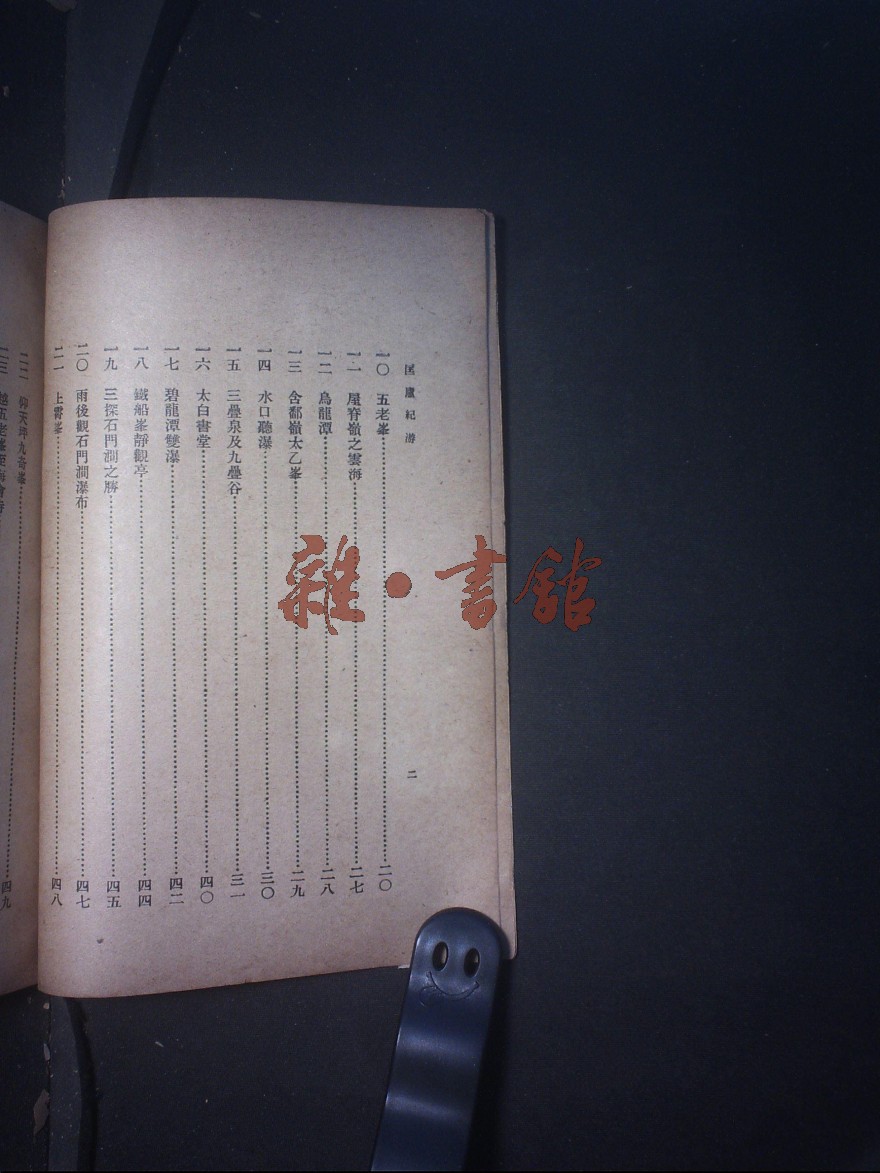 匡廬紀游
二
一〇 五老峯……二〇
一一 屋脊嶺之雲海……二七
一二 烏龍潭……二八
一三 含鄱嶺太乙峯……二九
一四 水口聽瀑……三〇
一五 三疊泉及九疊谷……三一
一六 太白書堂……四〇
一七 碧龍潭雙瀑……四二
一八 鐵船峯靜觀亭……四四
一九 三探石門澗之勝……四五
二〇 雨後觀石門澗瀑布……四七
二一 上霄峯……四八
二二 仰天坪九奇峯
二三 越五老峯至海會寺……四九
雜·書館